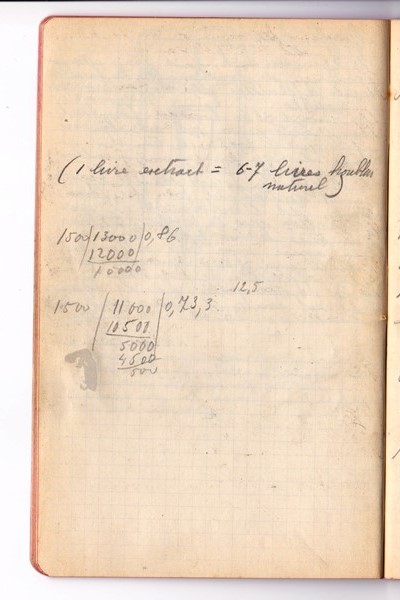 (1 livre extract = 6-7 livres houblon
naturel)
1500/13000/0,86
12000
10000
12,5
1500/11000/0,73,3
10500
5000
4500
500